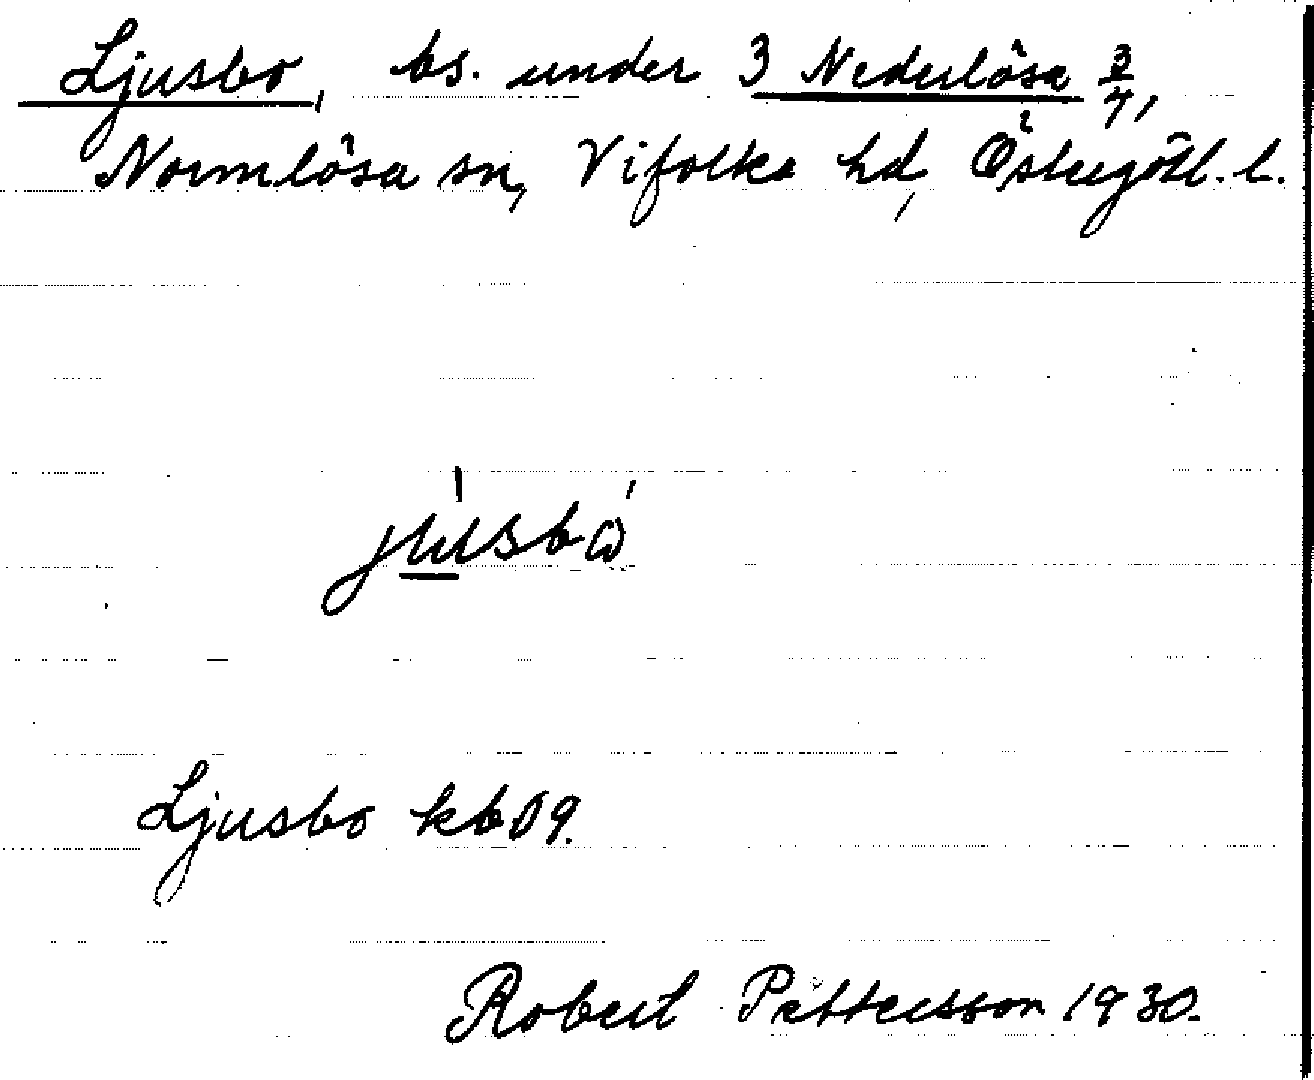 Ljusbo, bs. under 3 Nederlösa 3/4,
Normlösa sn, Vifolka hd, Östergötl. l.
jusbo
Ljusbo kb 09.
Robert Pettersson 1930.